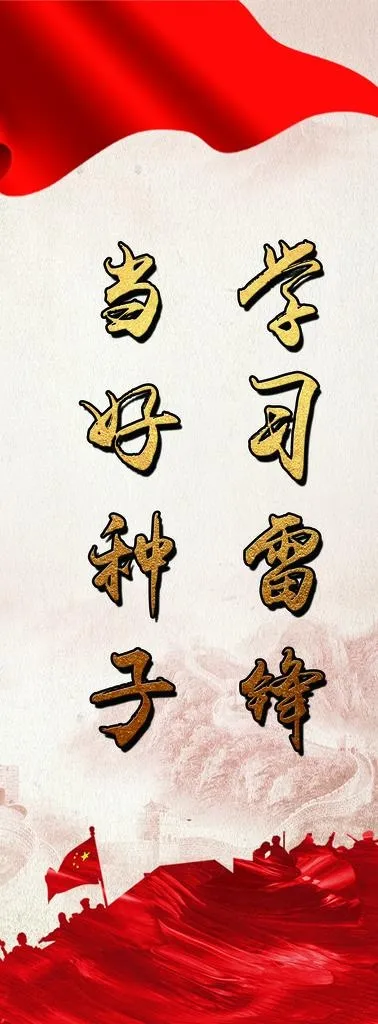 学习雷锋
当好种子